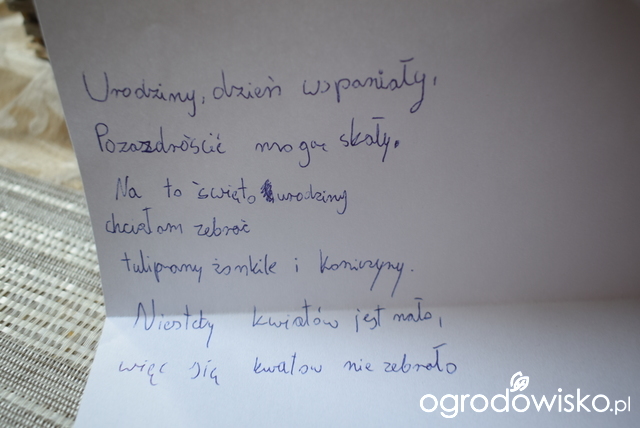 Urodziny, dzień wspaniały,
Pozazdrościć mogą skały.
Na to święto urodziny
chciałam zebrać
tulipany żonkile i koniczyny.
Niestety kwiatów jest mało,
więc się kwatow nie zebrało
ogrodowisko.pl